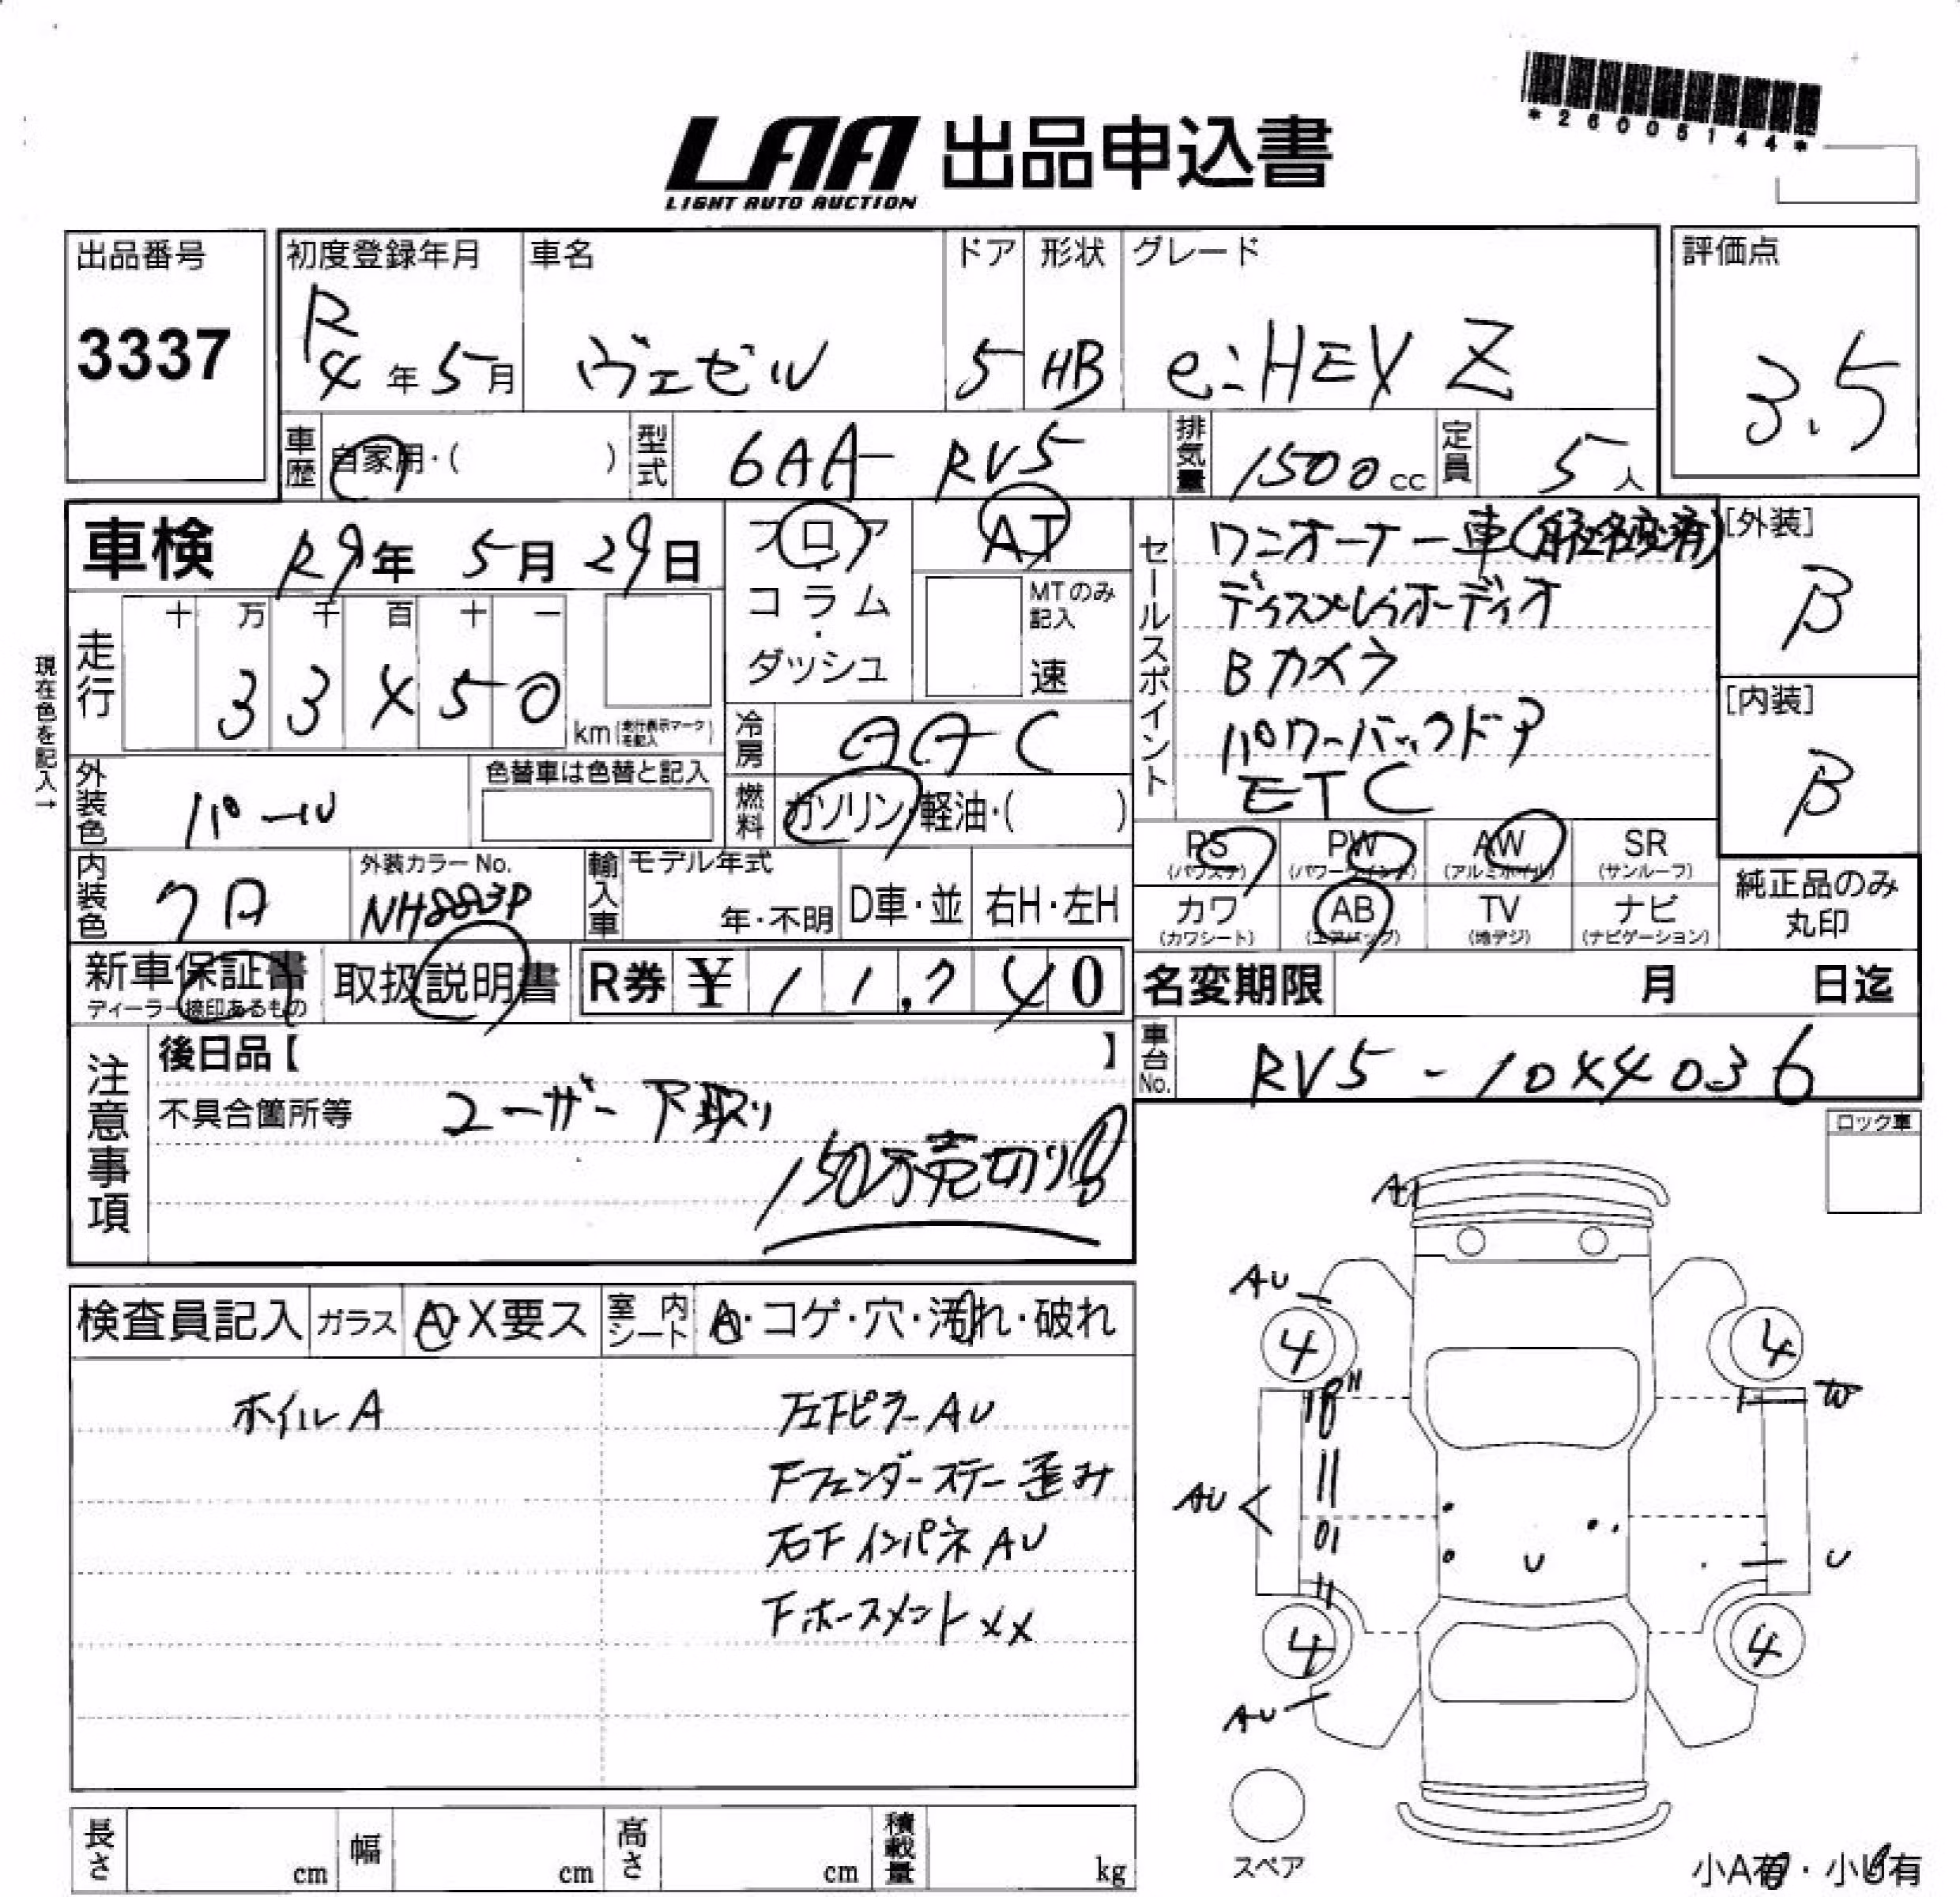 *26005144*
LAA 出品申込書
LIGHT AUTO AUCTION
出品番号 3337
初度登録年月 R4年5月
車名 ヴェゼル
ドア 5
形状 HB
グレード e:HEV Z
評価点 3.5
車歴 自家用・( )
型式 6AA-RV5
排気量 1500cc
定員 5人
車検 R9年5月29日
フロア・コラム・ダッシュ
AT
MTのみ記入 速
セールスポイント
ワンオーナー車
ディスプレイオーディオ
Bカメラ
パワーバックドア
ETC
[外装] B
[内装] B
現在色を記入→
走行 十万千百十一
33450 km (走行表示マークを記入)
冷房 AAC
燃料 ガソリン・軽油・( )
外装色 パール
色替車は色替と記入
内装色 クロ
外装カラーNo. NH883P
輸入車 モデル年式 年・不明
D車・並 右H・左H
PS (パワステ) PW (パワーウインド) AW (アルミホイル) SR (サンルーフ)
カワ (カワシート) AB (エアバッグ) TV (地デジ) ナビ (ナビゲーション)
純正品のみ丸印
新車保証書
ディーラー捺印あるもの
取扱説明書
R券 ¥11,740
名変期限 月 日迄
車台No. RV5-1044036
注意事項
後日品【 】
不具合箇所等 ユーザー下取り
150万売切り
ロック車
検査員記入 ガラス A・X要ス 室内シート A・コゲ・穴・汚れ・破れ
ホイルA
左Fピラー AU
Fフェンダーステー歪み
右Fインパネ AU
Fホースメント XX
A
AU
4 4
18" W
AU
U U
4 4
AU
スペア
長さ cm 幅 cm 高さ cm 積載量 kg
小A有・小U有